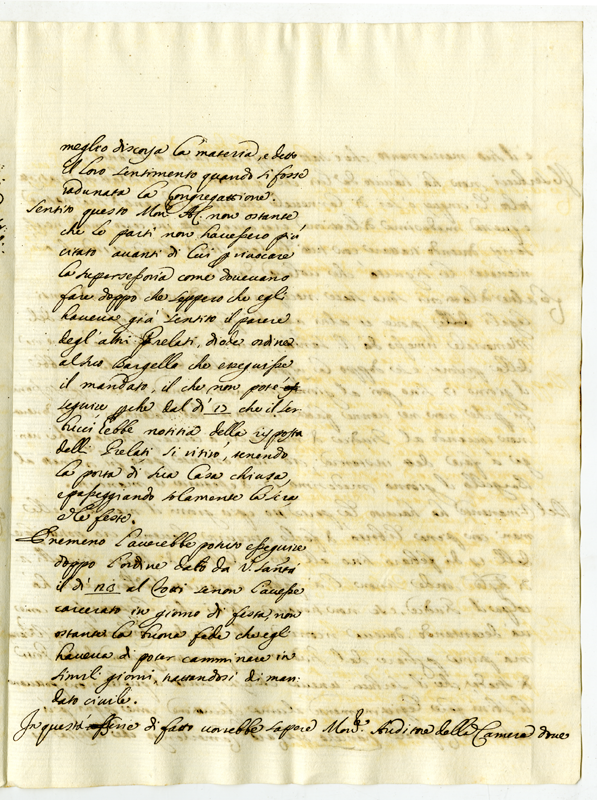 meglio discorsa la materia, e detto
il loro sentimento quando si fosse
radunata la Congregattione.
Sentito questo Mon.r A.C. non ostante
che le parti non havessero più
citato avanti di lui p rivocare
la supersessoria come dovevano
fare doppo che seppero che egli
haveva già sentito il parere
degl'altri Prelati, diede ordine
al suo Bargello che esseguisse
il mandato, il che non poté
seguire pche dal dì 12 che il Ser
lucci ebbe notitia della risposta
delli Prelati si ritirò, tenendo
la porta di sua Casa chiusa,
e passeggiando solamente la sera
e le feste.
E nemeno l'averebbe potuto esseguire
doppo l'ordine dato da V. Santà
il dì 23 al Corsi se non l'avesse
carcerato in giorno di festa, non
ostante la buona fede che egli
haveva di poter camminare in
simili giorni, trattandosi di man
dato civile.
In questa serie di fatto vorrebbe sapere Mon.re Auditore della Camera dove